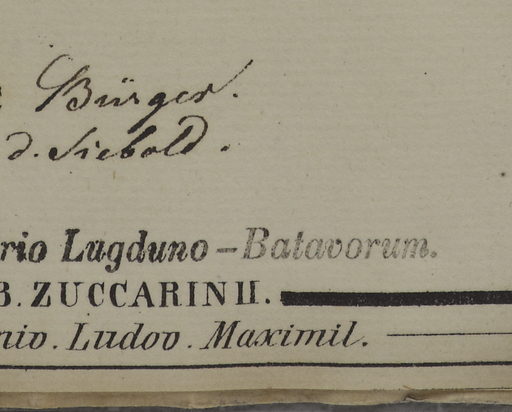 Bürger.
d. Siebold.
rio Lugduno-Batavorum.
B. ZUCCARINII.
niv. Ludov. Maximil.